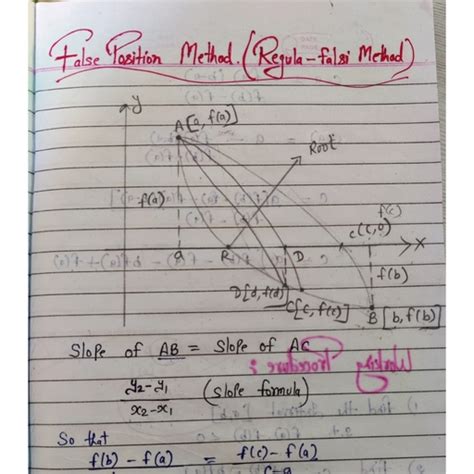 False Position Method. (Regula-falsi Method)
y
A[a, f(a)]
Root
f(a)
f(c)
c(c,0)
a
R
D
X
f(b)
D[d, f(d)]
C[c, f(c)]
B [b, f(b)]
Slope of AB = Slope of AC
Working Procedure :
y₂-y₁
x₂-x₁
(slope formula)
So that
f(b) - f(a) = f(c) - f(a)